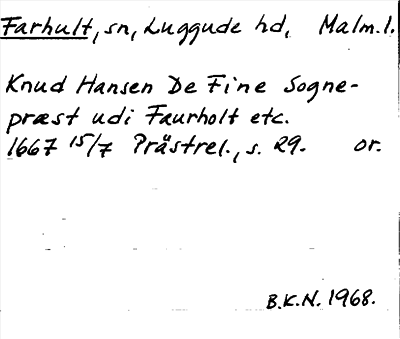 Farhult, sn, Luggude hd, Malm.l.
Knud Hansen De Fine Sogne-
præst udi Faurholt etc.
1667 15/7 Prästrel., s. 29. or.
B.K.N. 1968.